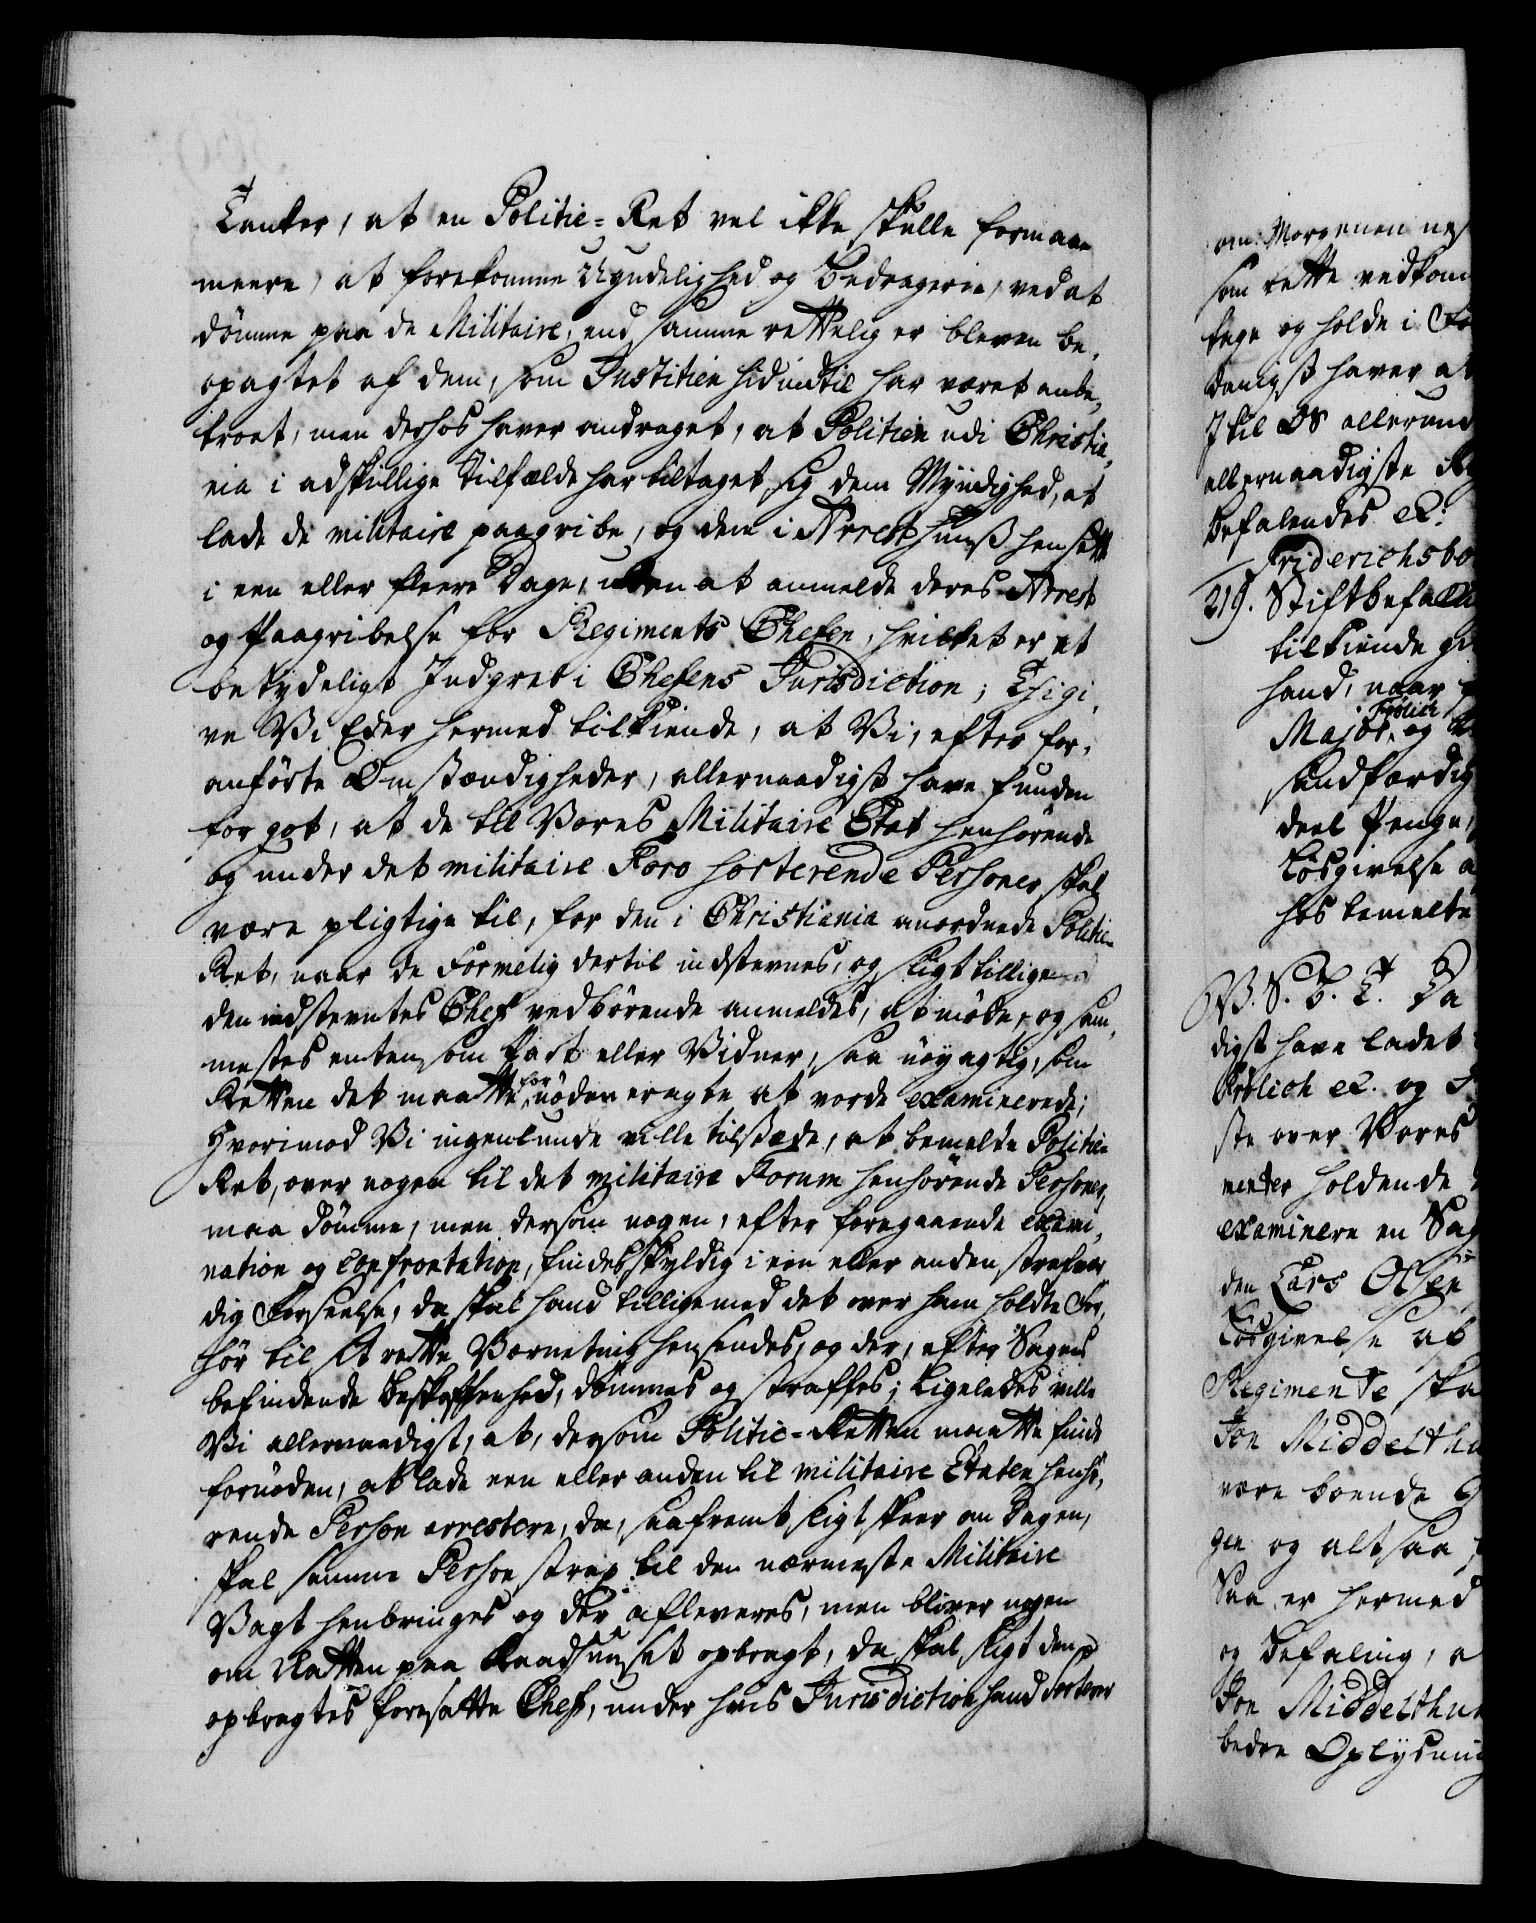 Tanker, at en Politie-Ret vel ikke skulle formaae
meere, at forekomme Uÿndelighed og Bedragerie, ved at
dömme paa de Militaire, end samme rettelig er bleven be-
opagtet af dem, som Justitien hidindtil har været anbe-
troet, men derhos haver andraget, at Politien udi Christia-
nia i adskillige Tilfælde har tiltaget sig dem Myndighed, at
lade de militaire paagribe, og dem i Arresthuuß hensette
i een eller fleere Dage, uden at anmelde deres Arrest
og Paagribelse for Regiments Chefen, hvilket er et
betydeligt Indgreb i Chefens Jurisdiction; Thi gi-
ve Vi Eder hermed tilkiende, at Vi, efter for-
anförte Omstændigheder, allernaadigst have funden
for got, at de til Vores Militaire Etat henhörende
og under det militaire Foro sorterende Persones skal
være pligtige til, for den i Christiania anordnede Politie-
Ret, naar de Formelig dertil indstevnes, og sligt tillige
den indstevntes Chef vedbörende anmeldes, at möde, og sam-
mestes enten som Part eller Vidner, saa nöyagtig, som
Retten det maatte for nöden eragte at vorde examinerede;
Hvorimod Vi ingenlunde ville tilstæde, at bemelte Politie-
Ret, over nogen til det militaire Forum henhörende Persones,
maa dömme, men dersom nogen, efter foregaaende exami-
nation og Confrontation, findes skyldig i een eller anden strafvær
dig Forseelse, da skal hand tilligemed det over ham holdte For-
hör til sit rette Værneting hensendes, og der, efter Sagens
befindende Beskaffenhed, dömmes og straffes; Ligeledes ville
Vi allernaadigst, at, dersom Politie-Retten maatte finde
fornöden, at lade een eller anden til militaire Etaten henhö-
rende Person arrestere, da, saafremt sligt skeer om Dagen,
skal samme Person strax til den nærmeste Militaire
Vagt henbringes og der afleveres, men bliver nogen
om Natten paa Raadhuuset opbragt, da skal sligt den
opbragtes foresatte Chef, under hvis Jurisdiction hand sorterer
om Morgenen nes
som rette vedkom
tage og holde i For
danigst haver at
I til OS allerund
allernaadigste
Befalendes etc:
Friderichsbo
219. Stiftbefalin
tilkiende gi
hand, naar
Major Frölich, og
handfærdig
deel Penge,
Lösgivelse
hos bemelte
V. S. G. T. Da
digst have ladet
Frölich etc. og
ste over Vores
menter holdende
examinere en Sag
den Lars Olsen
Lösgivelse at
Regimente, ska
Jon Middelthu
være boende
gen og altsaa
Saa er hermed
og Befaling, a
Jon Middelthun
bedre Oplysning